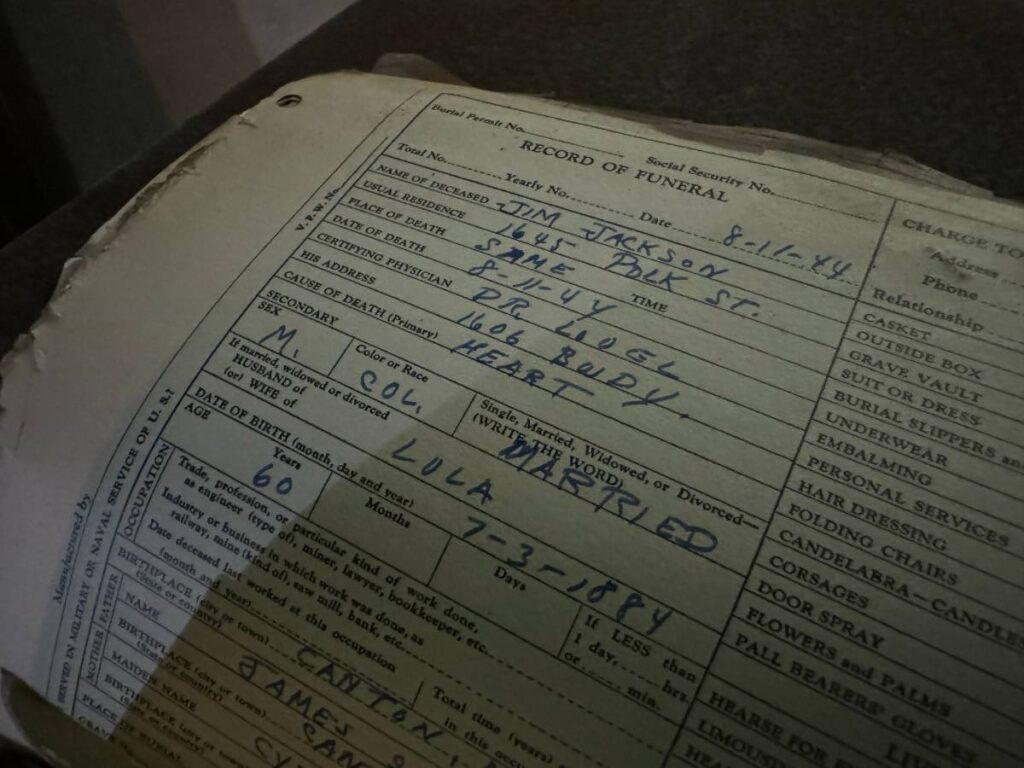 Burial Permit No. Social Security No.
RECORD OF FUNERAL
Total No. Yearly No. Date 8-11-44
NAME OF DECEASED JIM JACKSON
USUAL RESIDENCE 1645 POLK ST.
PLACE OF DEATH SAME
DATE OF DEATH 8-11-44 TIME
CERTIFYING PHYSICIAN DR
HIS ADDRESS 1606
CAUSE OF DEATH (Primary) HEART
SECONDARY
SEX M.
Color or Race COL.
Single, Married, Widowed, or Divorced—
(WRITE THE WORD) MARRIED
If married, widowed or divorced
HUSBAND of
(or) WIFE of LULA
DATE OF BIRTH (month, day and year) 7-3-1884
AGE Years 60 Months Days If LESS than
1 day, hrs.
or min.
OCCUPATION
Trade, profession, or particular kind of work done,
as engineer (type of), miner, lawyer, bookkeeper, etc.
Industry or business in which work was done, as
railway, mine (kind of), saw mill, bank, etc.
Date deceased last worked at this occupation
(month and year) Total time (years)
in this
BIRTHPLACE (city or town) CANTON
(State or country)
FATHER
NAME JAMES
BIRTHPLACE (city or town)
(State or country)
MOTHER
MAIDEN NAME
BIRTHPLACE (city or town)
PLACE
V. F. W. No.
SERVED IN MILITARY OR NAVAL SERVICE OF U. S.?
Manufactured by
CHARGE TO
Address
Phone
Relationship
CASKET
OUTSIDE BOX
GRAVE VAULT
SUIT OR DRESS
BURIAL SLIPPERS and
UNDERWEAR
EMBALMING
PERSONAL SERVICES
HAIR DRESSING
FOLDING CHAIRS
CANDELABRA—CANDLES
CORSAGES
DOOR SPRAY
FLOWERS and PALMS
PALL BEARERS' GLOVES
HEARSE FOR